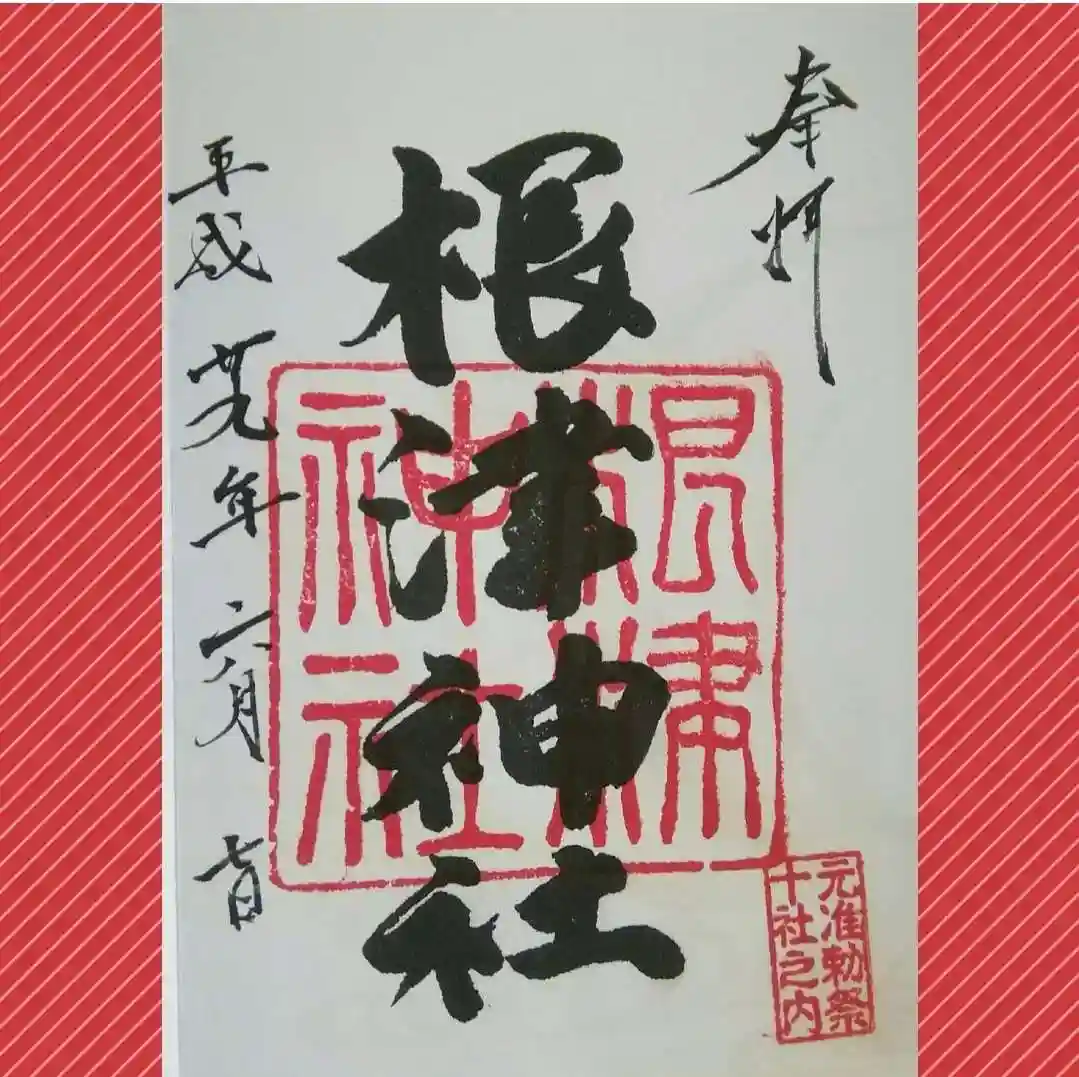 奉拝
根津神社
神社
元准勅祭
十社之内
平成廿九年六月七日